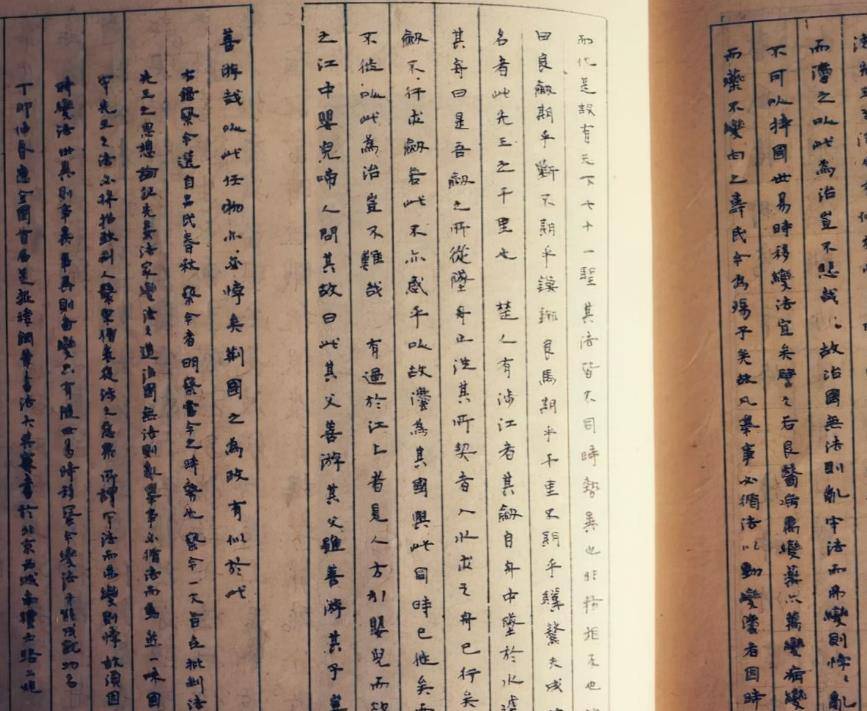 而澭之以此為治豈不悲哉故治國無法則亂守法而弗變則悖悖亂
不可以持國世易時移變法宜矣譬之若良醫病萬變藥亦萬變病變
而藥不變向之壽民今為殤子矣故凡舉事必循法以動變法者因時
而化是故有天下七十一聖其法皆不同時勢異也非務相反也
曰良劍期乎斷不期乎鏌鋣良馬期乎千里不期乎驥驁夫成
名者此先王之千里也 楚人有涉江者其劍自舟中墜於水遽
其舟曰是吾劍之所從墜舟止從其所契者入水求之舟已行矣
劍不行求劍若此不亦惑乎以故法為其國與此同時已徙矣而
不徙以此為治豈不難哉 有過於江上者見人方引嬰兒而欲
之江中嬰兒啼人問其故曰此其父善游其父雖善游其子豈
善游哉以此任物亦必悖矣荊國之為政有似於此
右錄察今選自呂氏春秋察今者明察當今之時勢也察今一文旨在批判法
先王之思想論証先秦法家變法之道治國無法則亂舉事必循法而為然一味固
守先王之法 所謂守法而弗變則悖故須因
時變法世異則事異事異則備變只有隨世易時移察今變法才能成就功名
丁卯仲春應全國首屆 鋼筆書法大奬賽書於北京西城